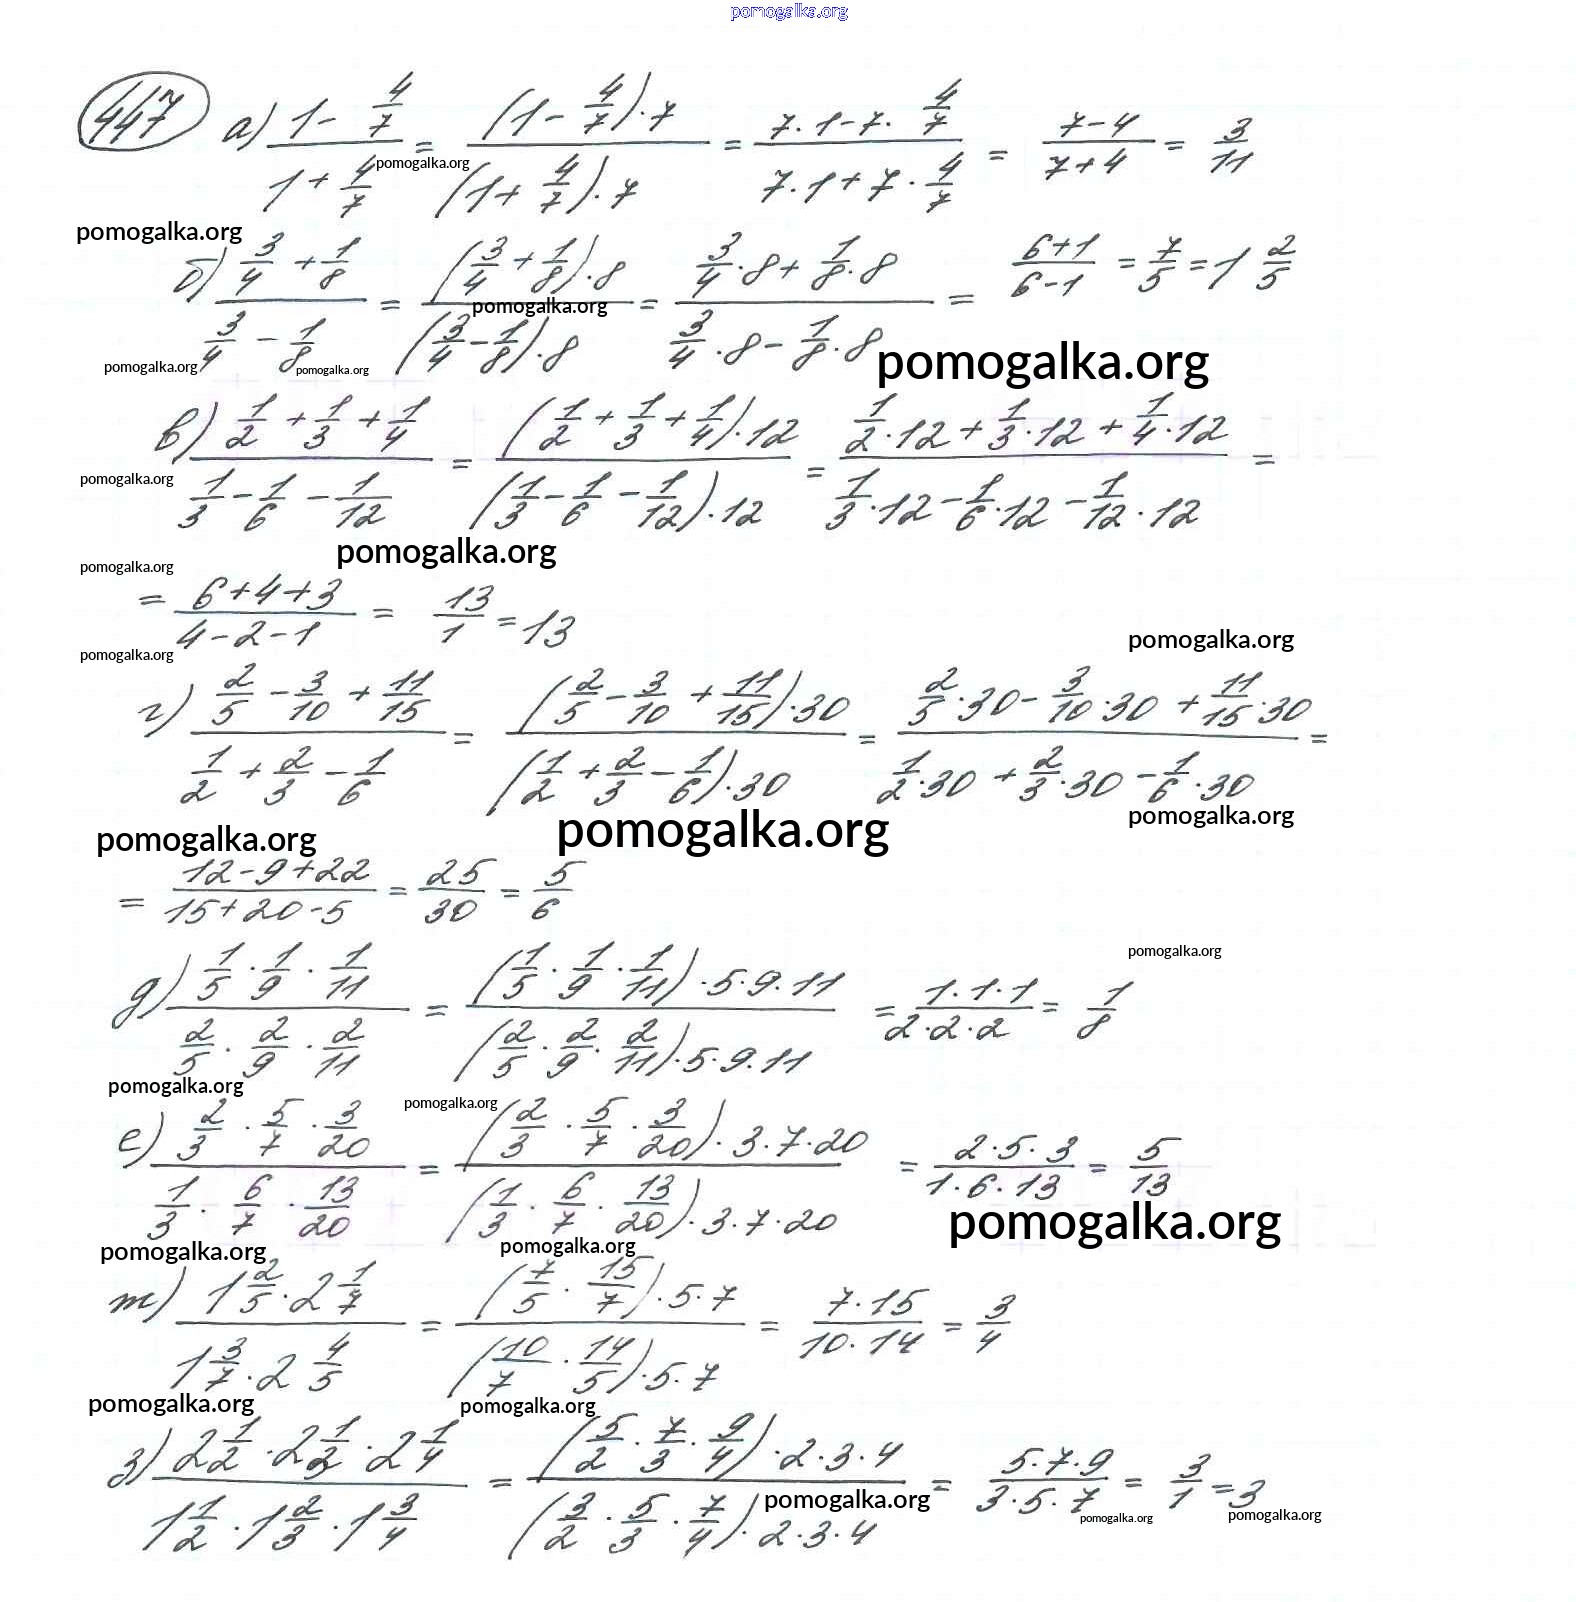 pomogalka.org
447 а) (1 - 4/7)/(1 + 4/7) = ((1 - 4/7)·7)/((1 + 4/7)·7) = (7·1 - 7·4/7)/(7·1 + 7·4/7) = (7-4)/(7+4) = 3/11
pomogalka.org
pomogalka.org
б) (3/4 + 1/8)/(3/4 - 1/8) = ((3/4 + 1/8)·8)/((3/4 - 1/8)·8) = (3/4·8 + 1/8·8)/(3/4·8 - 1/8·8) = (6+1)/(6-1) = 7/5 = 1 2/5
pomogalka.org
pomogalka.org pomogalka.org pomogalka.org
в) (1/2 + 1/3 + 1/4)/(1/3 - 1/6 - 1/12) = ((1/2 + 1/3 + 1/4)·12)/((1/3 - 1/6 - 1/12)·12) = (1/2·12 + 1/3·12 + 1/4·12)/(1/3·12 - 1/6·12 - 1/12·12) =
pomogalka.org
pomogalka.org
pomogalka.org
= (6+4+3)/(4-2-1) = 13/1 = 13
pomogalka.org
pomogalka.org
г) (2/5 - 3/10 + 11/15)/(1/2 + 2/3 - 1/6) = ((2/5 - 3/10 + 11/15)·30)/((1/2 + 2/3 - 1/6)·30) = (2/5·30 - 3/10·30 + 11/15·30)/(1/2·30 + 2/3·30 - 1/6·30) =
pomogalka.org pomogalka.org pomogalka.org
= (12-9+22)/(15+20-5) = 25/30 = 5/6
pomogalka.org
д) (1/5 · 1/9 · 1/11)/(2/5 · 2/9 · 2/11) = ((1/5 · 1/9 · 1/11)·5·9·11)/((2/5 · 2/9 · 2/11)·5·9·11) = (1·1·1)/(2·2·2) = 1/8
pomogalka.org
pomogalka.org
е) (2/3 · 5/7 · 3/20)/(1/3 · 6/7 · 13/20) = ((2/3 · 5/7 · 3/20)·3·7·20)/((1/3 · 6/7 · 13/20)·3·7·20) = (2·5·3)/(1·6·13) = 5/13
pomogalka.org
pomogalka.org pomogalka.org
ж) (1 2/5 · 2 1/7)/(1 3/7 · 2 4/5) = ((7/5 · 15/7)·5·7)/((10/7 · 14/5)·5·7) = (7·15)/(10·14) = 3/4
pomogalka.org pomogalka.org
з) (2 1/2 · 2 1/3 · 2 1/4)/(1 1/2 · 1 2/3 · 1 3/4) = ((5/2 · 7/3 · 9/4)·2·3·4)/((3/2 · 5/3 · 7/4)·2·3·4) = (5·7·9)/(3·5·7) = 3/1 = 3
pomogalka.org pomogalka.org pomogalka.org